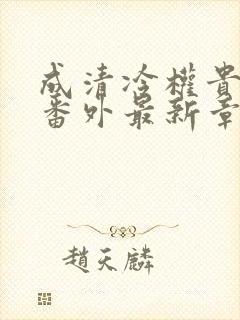 成清冷權貴
番外最新章
趙天麟